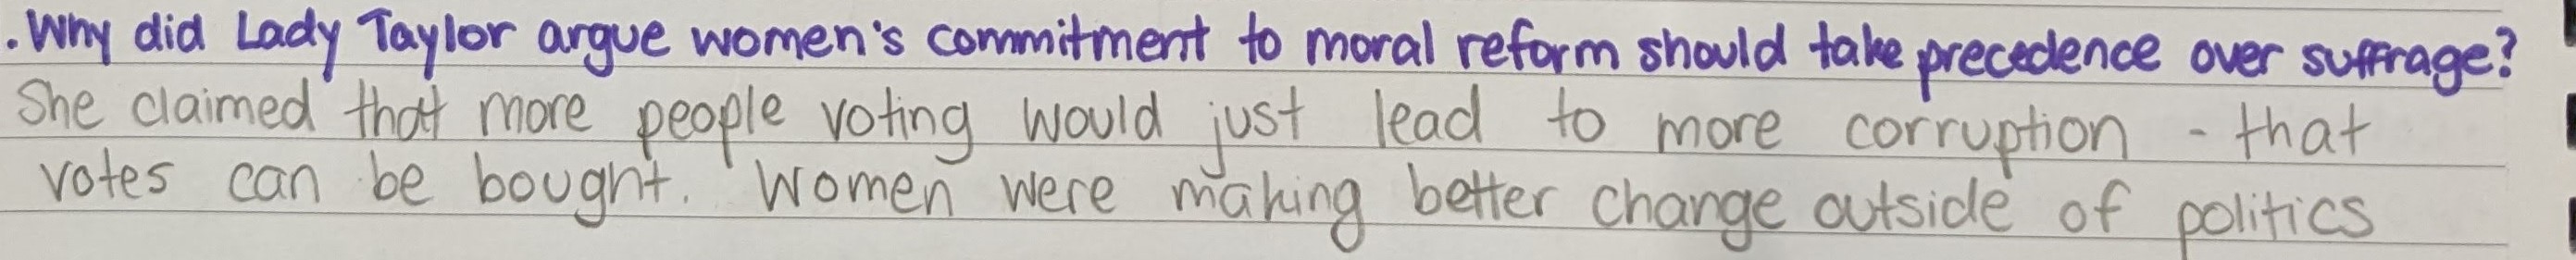 . Why did Lady Taylor argue women's commitment to moral reform should take precedence over suffrage?
She claimed that more people voting would just lead to more corruption - that
votes can be bought. Women were making better change outside of politics